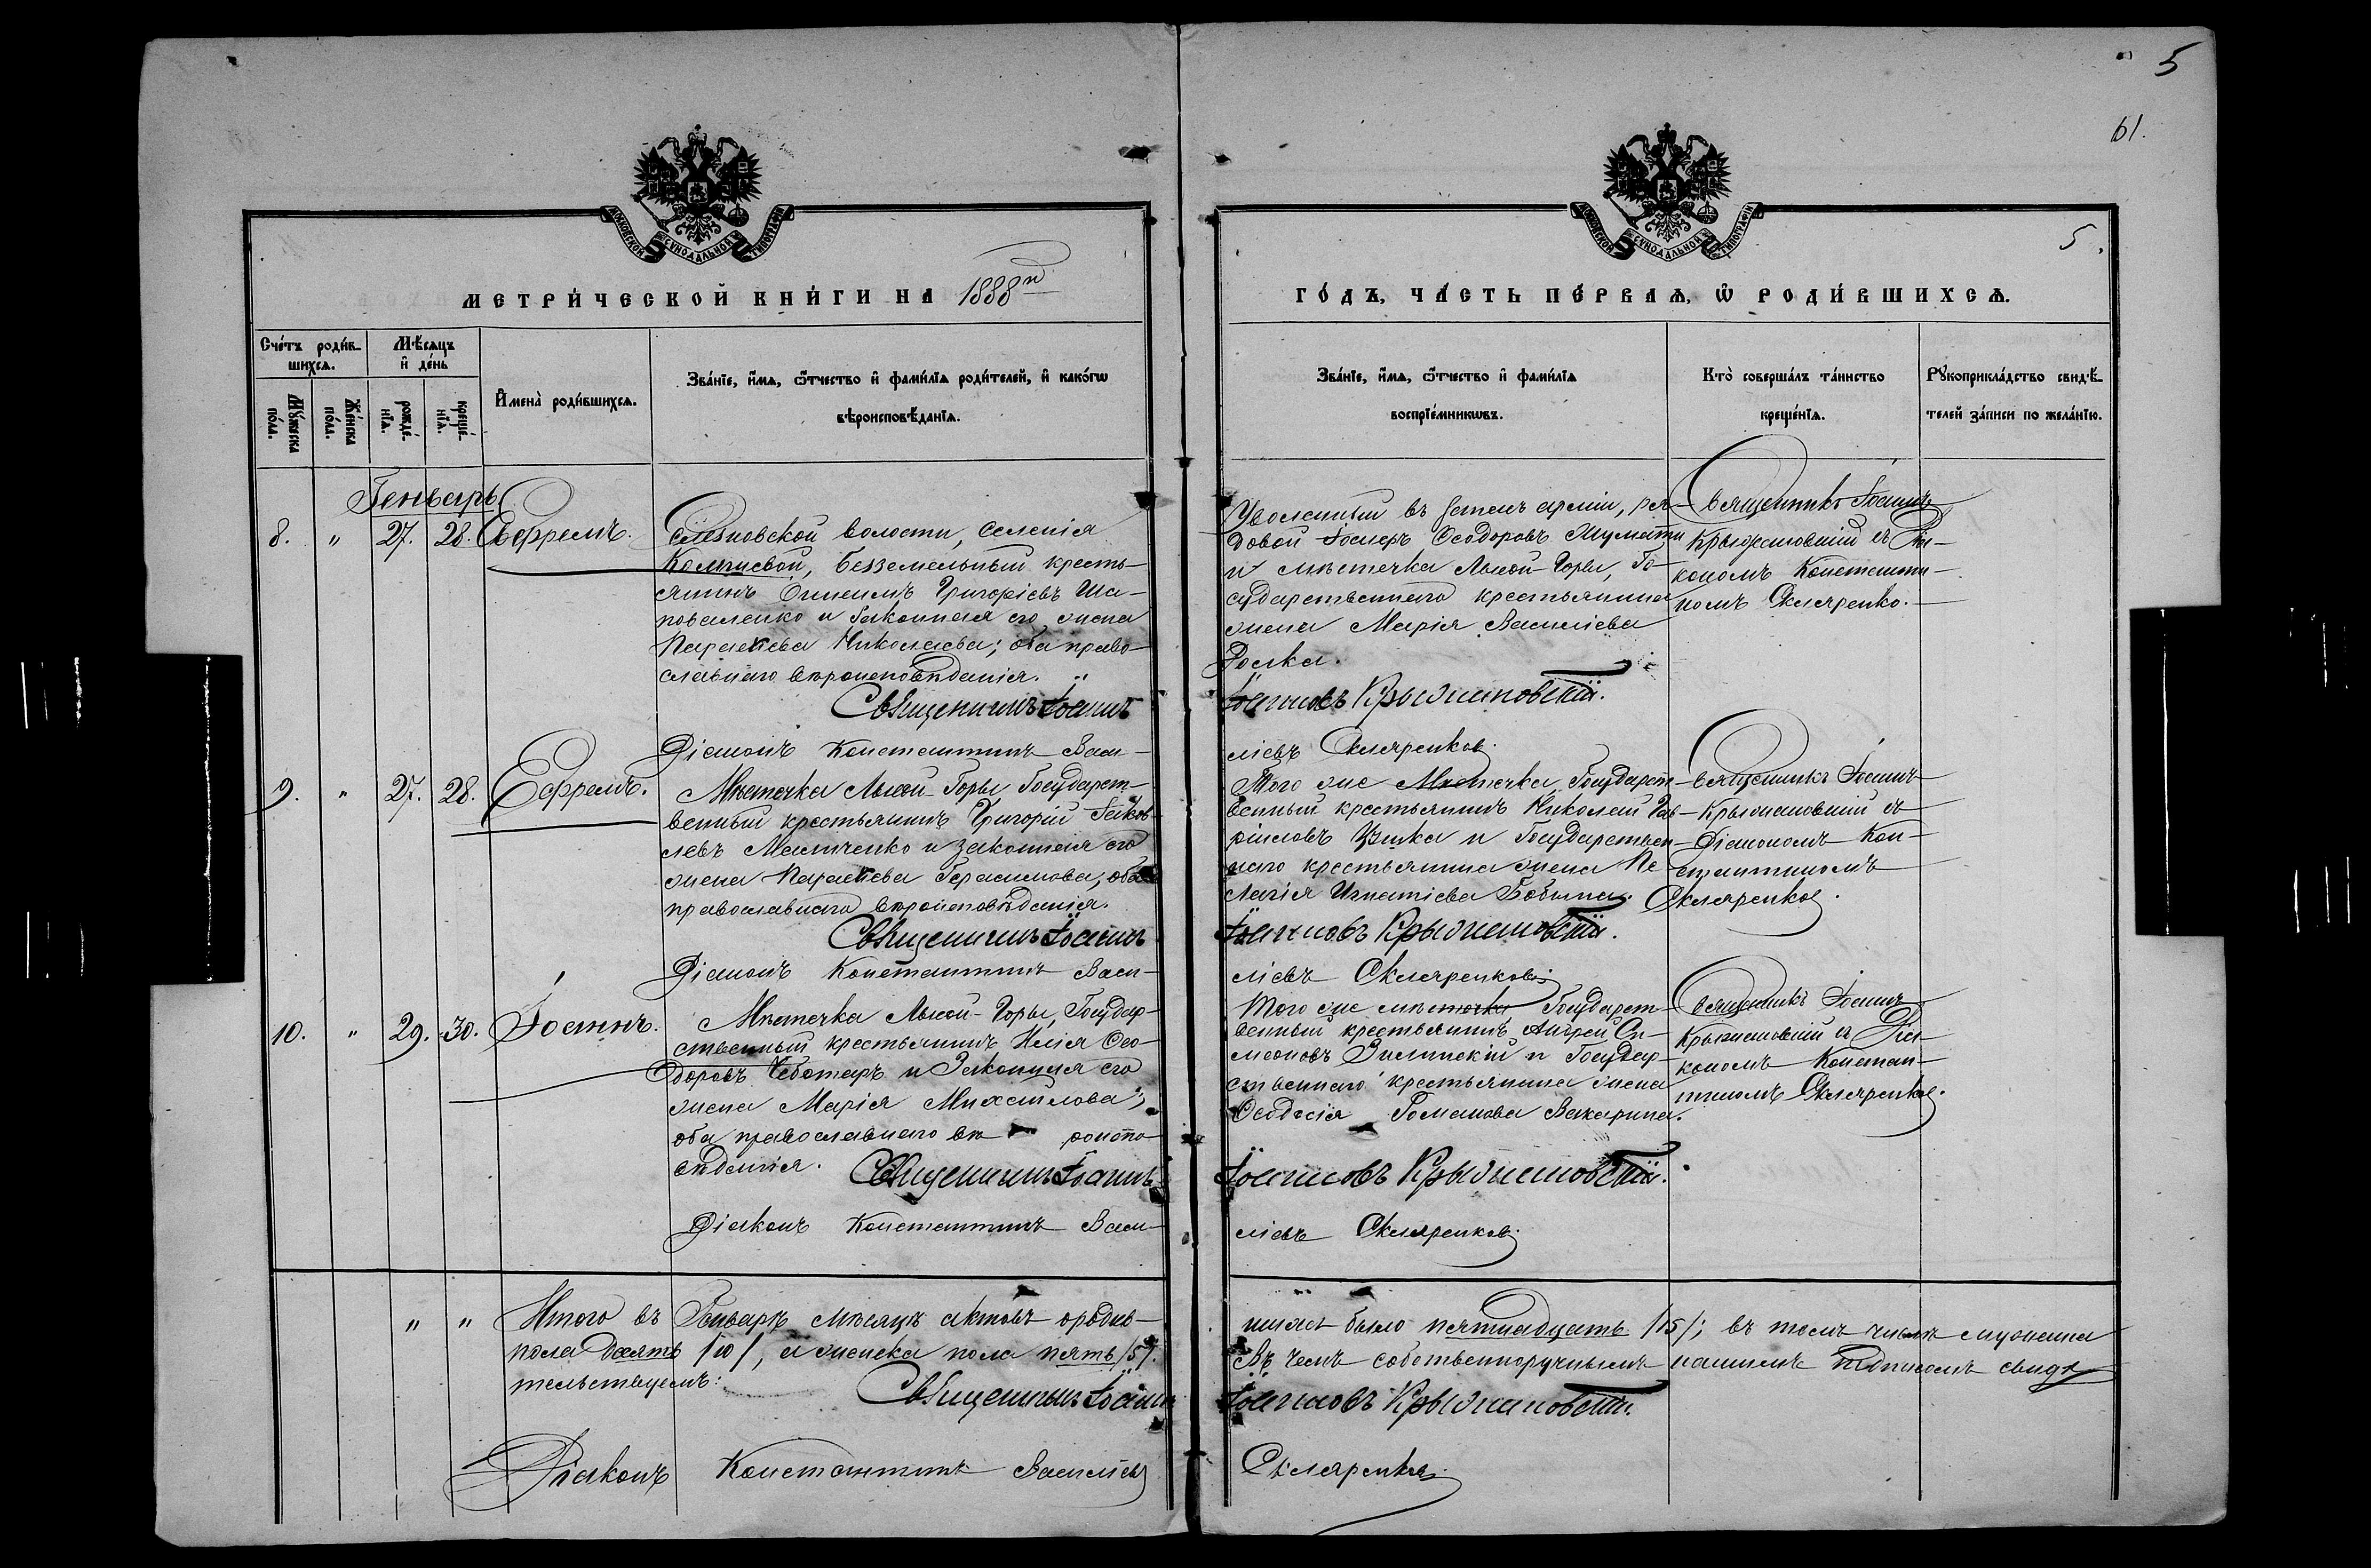 5
61.
МОСКОВСКОЙ СѴНОДАЛЬНОЙ ТИПОГРАФІИ
МОСКОВСКОЙ СѴНОДАЛЬНОЙ ТИПОГРАФІИ
5.
МЕТРИ́ЧЕСКОЙ КНИ́ГИ НА 1888й
ГО́ДЪ, ЧА́СТЬ ПЕ́РВАѦ, Ѡ҆ РОДИ́ВШИХСѦ.
Сче́тъ роди́в-
шихсѧ.
Мѣ́сѧцъ
и҆ де́нь
Мꙋ́жеска
по́ла.
Же́нска
по́ла.
рожде́-
нїѧ.
креще́-
нїѧ.
И҆мена̀ роди́вшихсѧ.
Зва́нїе, и҆́мѧ, ѻ҆́тчество и҆ фами́лїѧ роди́телей, и҆ како́гѡ
вѣроисповѣ́данїѧ.
Зва́нїе, и҆́мѧ, ѻ҆́тчество и҆ фами́лїѧ
воспрїе́мникѡвъ.
Кто̀ соверша́лъ та́инство
креще́нїѧ.
Рꙋкоприкла́дство свидѣ́-
телей за́писи по жела́нїю.
Генварь
8. " 27. 28. Ефремъ.
волости, селенія
безземельный кресть-
янинъ Григоріевъ Ша-
поваленко и законная его жена
Параскева Николаева; оба право-
славнаго вѣроисповѣданія.
Священникъ Іоаннъ
Діаконъ Константинъ Васи-
Уволенный въ запасъ арміи, ря-
довой Ѳеодоровъ
и мѣстечка Лысой-Горы, Го-
сударственнаго крестьянина
жена Марія Василіева
Іоанновъ Крыжановскій.
ліевъ Скляренков.
Священникъ Іоаннъ
Крыжановскій съ Діа-
кономъ Константи-
номъ Скляренко.
9. " 27. 28. Ефремъ.
Мѣстечка Лысой-Горы Государст-
венный крестьянинъ Григорій Яков-
левъ и законная его
жена Параскева Герасимова, оба
православнаго вѣроисповѣданія.
Священникъ Іоаннъ
Діаконъ Константинъ Васи-
Того же Мѣстечка, Государст-
венный крестьянинъ Николай Гав-
ріиловъ и Государствен-
наго крестьянина жена Пе-
лагія Игнатіева
Іоанновъ Крыжановскій.
ліевъ Скляренков.
Священникъ Іоаннъ
Крыжановскій съ
Діакономъ Кон-
стантиномъ
Скляренков.
10. " 29. 30. Іоаннъ.
Мѣстечка Лысой-Горы, Государ-
ственный крестьянинъ Илія Ѳео-
доровъ Чеботарь и Законная его
жена Марія Михаилова;
оба православнаго вѣ роиспо-
вѣданія.
Священникъ Іоаннъ
Діаконъ Константинъ Васи-
Того же мѣстечка Государст-
венный крестьянинъ Андрей Си-
меоновъ Зилинскій и Государ-
ственнаго крестьянина жена
Ѳеодосія Романова
Іоанновъ Крыжановскій.
ліевъ Скляренков.
Священникъ Іоаннъ
Крыжановскій съ Діа-
кономъ Констан-
тиномъ Скляренков.
" " Итого въ Генварѣ мѣсяцѣ актовъ о родив-
шихся было пятнадцать /15/; въ томъ числѣ мужеска
пола десять /10/, а женска пола пять /5/.
Въ чемъ собственноручнымъ нашимъ подписомъ свидѣ-
тельствуемъ:
Священникъ Іоаннъ
Іоанновъ Крыжановскій.
Діаконъ Константинъ Василіевъ
Скляренков.